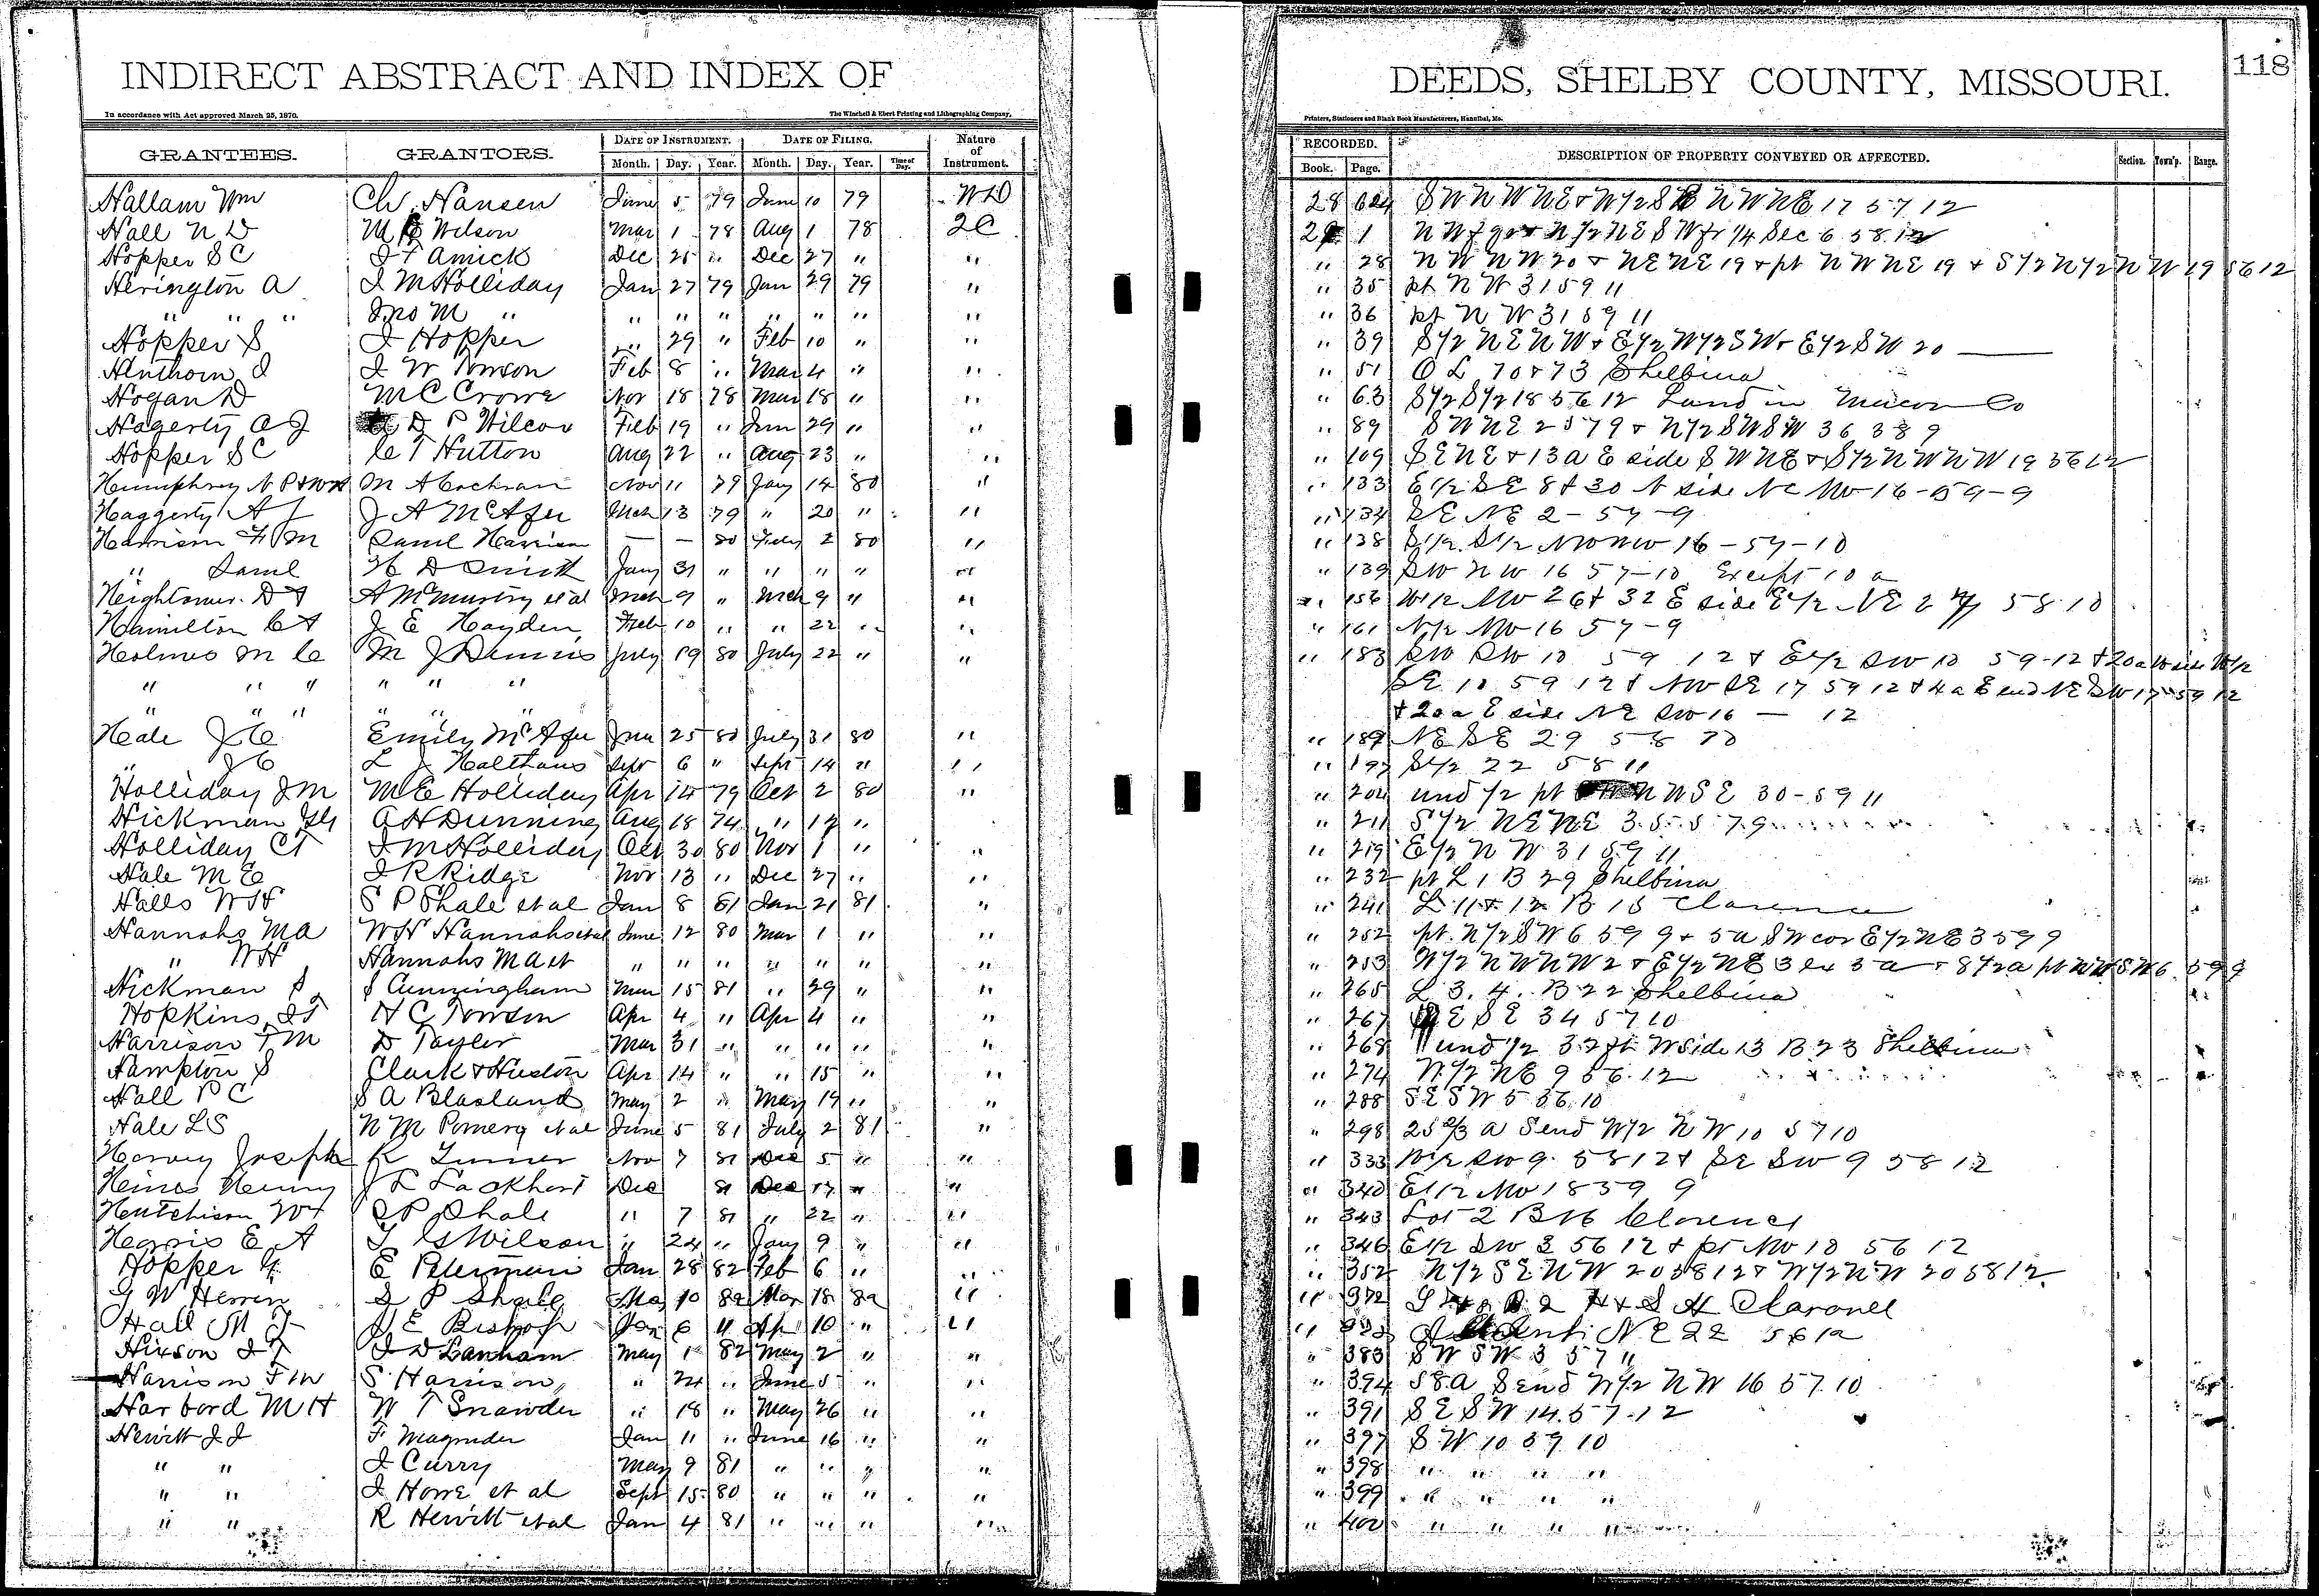 INDIRECT ABSTRACT AND INDEX OF DEEDS, SHELBY COUNTY, MISSOURI. 118
In accordance with Act approved March 25, 1870. The Winchell & Ebert Printing and Lithographing Company, Printers, Stationers and Blank Book Manufacturers, Hannibal, Mo.
GRANTEES. GRANTORS. DATE OF INSTRUMENT. DATE OF FILING. Nature of Instrument. RECORDED. DESCRIPTION OF PROPERTY CONVEYED OR AFFECTED. Section. Town'p. Range.
Month. Day. Year. Month. Day. Year. Time of Day. Book. Page.
Hallam Wm Ch. Hansen June 5 79 June 10 79 WD 28 624 17 57 12
Hall N D Wilson Mar 1 78 Aug 1 78 2C 1 Sec 6 58 12
Hopper S C Amick Dec 21 " Dec 27 " " " 28 NW NW 20 + NE NE 19 + pt NW NE 19 + S 1/2 N 1/2 NW 19 56 12
Herington A J M Holliday Jan 27 79 Jan 29 79 " " 35 pt NW 31 59 11
" " " Jno M " " " " " " " " " 36 pt NW 31 59 11
Hopper S J Hopper " 29 " Feb 10 " " " 39 S 1/2 NE NW + E 1/2 W 1/2 SW + E 1/2 SW 20
J W Towson Feb 8 " Mar 4 " " " 51 O L 70 + 73 Shelbina
Hogan D M C Crowe Nov 18 78 Mar 18 " " " 63 S 1/2 S 1/2 18 56 12 Land in Macon Co
Hagerty A J D P Wilcox Feb 19 " Jun 29 " " " 89 SW NE 2 57 9 + N 1/2 SW SW 36 9
Hopper S C C T Hutton Aug 22 " Aug 23 " " " 109 SE NE + 13 a E side SW NE + S 1/2 NW NW 19 56 12
Humphrey N P M A Cochran Nov 11 79 Jany 14 80 " " 133 E 1/2 SE 8 + 30 N side NE NW 16-59-9
Haggerty A J J A McAfee Mch 13 79 " 20 " " " 134 SE NE 2-57-9
Harrison F M Saml Harrison — — 80 Feby 2 80 " " 138 S 1/2 S 1/2 NW NW 16-57-10
" Saml H D Smith Jany 31 " " " " " " 139 SW NW 16 57-10 Except 10 a
D F A McMurtry et al Mch 9 " Mch 9 " " " 156 W 1/2 NW 26 + 32 E side E 1/2 NE 27 58 10
Hamilton C A J E Hayden Feb 10 " " 22 " " " 161 N 1/2 NW 16 57-9
Holmes M C M J Dennis July 19 80 July 22 " " " 183 SW SW 10 59 12 + E 1/2 SW 10 59-12 + 20 a W side W 1/2
" " " " " " SE 10 59 12 + NW SE 17 59 12 + 4 a E end NE SW 17-59 12
" " " " " " + 20 a E side NE SW 16 — 12
Hale J C Emily McAfee Jun 25 80 July 31 80 " " 189 NE SE 29 58 10
" J C L J Holthaus Sept 6 " Sept 14 " " " 197 S 1/2 22 58 11
Holliday J M M E Holliday Apr 14 79 Oct 2 80 " " 204 und 1/2 pt NW SE 30-59 11
Hickman A H Dunning Aug 18 74 " 12 " " 211 S 1/2 NE NE 35 57 9
Holliday C T J M Holliday Oct 30 80 Nov 1 " " " 219 E 1/2 NW 31 59 11
Hale M E J R Ridge Nov 13 " Dec 27 " " " 232 pt L 1 B 29 Shelbina
Halls W H S P Shale et al Jan 8 81 Jan 21 81 " " 241 L 11 + 12 B 15 Clarence
Hannahs M A W H Hannahs et al June 12 80 Mar 1 " " " 252 pt N 1/2 SW 6 59 9 + 5 a SW cor E 1/2 NE 3 59 9
" W H Hannahs M A et " " " " " " " " 253 W 1/2 NW NW 2 + E 1/2 NE 3 ex 5 a + 8 1/2 a pt NW SW 6 59 9
Hickman S J Cunningham Mar 15 81 " 29 " " " 265 L 3. 4. B 22 Shelbina
Hopkins J T H C Towson Apr 4 " Apr 4 " " " 267 SE 34 57 10
Harrison F M D Tayler Mar 31 " " " " " " 268 und 1/2 32 ft W side 13 B 23 Shelbina
Hampton S Clark & Huston Apr 14 " " 15 " " " 274 N 1/2 NE 9 56 12
Hall P C S A Blasland May 2 " May 19 " " " 288 SE SW 5 56 10
Hale L S N M Pomery et al June 5 81 July 2 81 " " 298 25 2/3 a S end W 1/2 NW 10 57 10
Harvey Joseph K Turner Nov 7 81 Dec 5 " " " 333 W 1/2 SW 9 58 12 + SE SW 9 58 12
Heines Henry J L Lockhart Dec 81 Dec 17 " " " 340 E 1/2 NW 18 59 9
Hutchison S P Shale " 7 81 " 22 " " " 343 Lot 2 B 16 Clarence
Harris E A T S Wilson " 24 " Jany 9 " " " 346 E 1/2 SW 3 56 12 + pt NW 10 56 12
Hopper G E Peterman Jan 28 82 Feb 6 " " " 352 N 1/2 SE NW 20 58 12 + W 1/2 NW 20 58 12
G W Herren S P Shale Mar 10 82 Mar 18 82 " " 372 B 2 H & S A Clarence
Hall M J J E Bishop Jan 6 " Ap 10 " " " NE 22 56 12
Hixson J T J D Lanham May 1 82 May 2 " " " 383 SW SW 3 57 11
Harrison F M S Harrison " 24 " June 5 " " " 394 58 a S end W 1/2 NW 16 57 10
Harbord M H W T Snawder " 18 " May 26 " " " 391 SE SW 14 57-12
Hewitt J J F Magruder Jan 11 " June 16 " " " 397 SW 10 59 10
" " J Curry May 9 81 " " " " " 398 " " " "
" " J Howe et al Sept 15 80 " " " " " 399 " " " "
" " R Hewitt et al Jan 4 81 " " " " " 400 " " " "